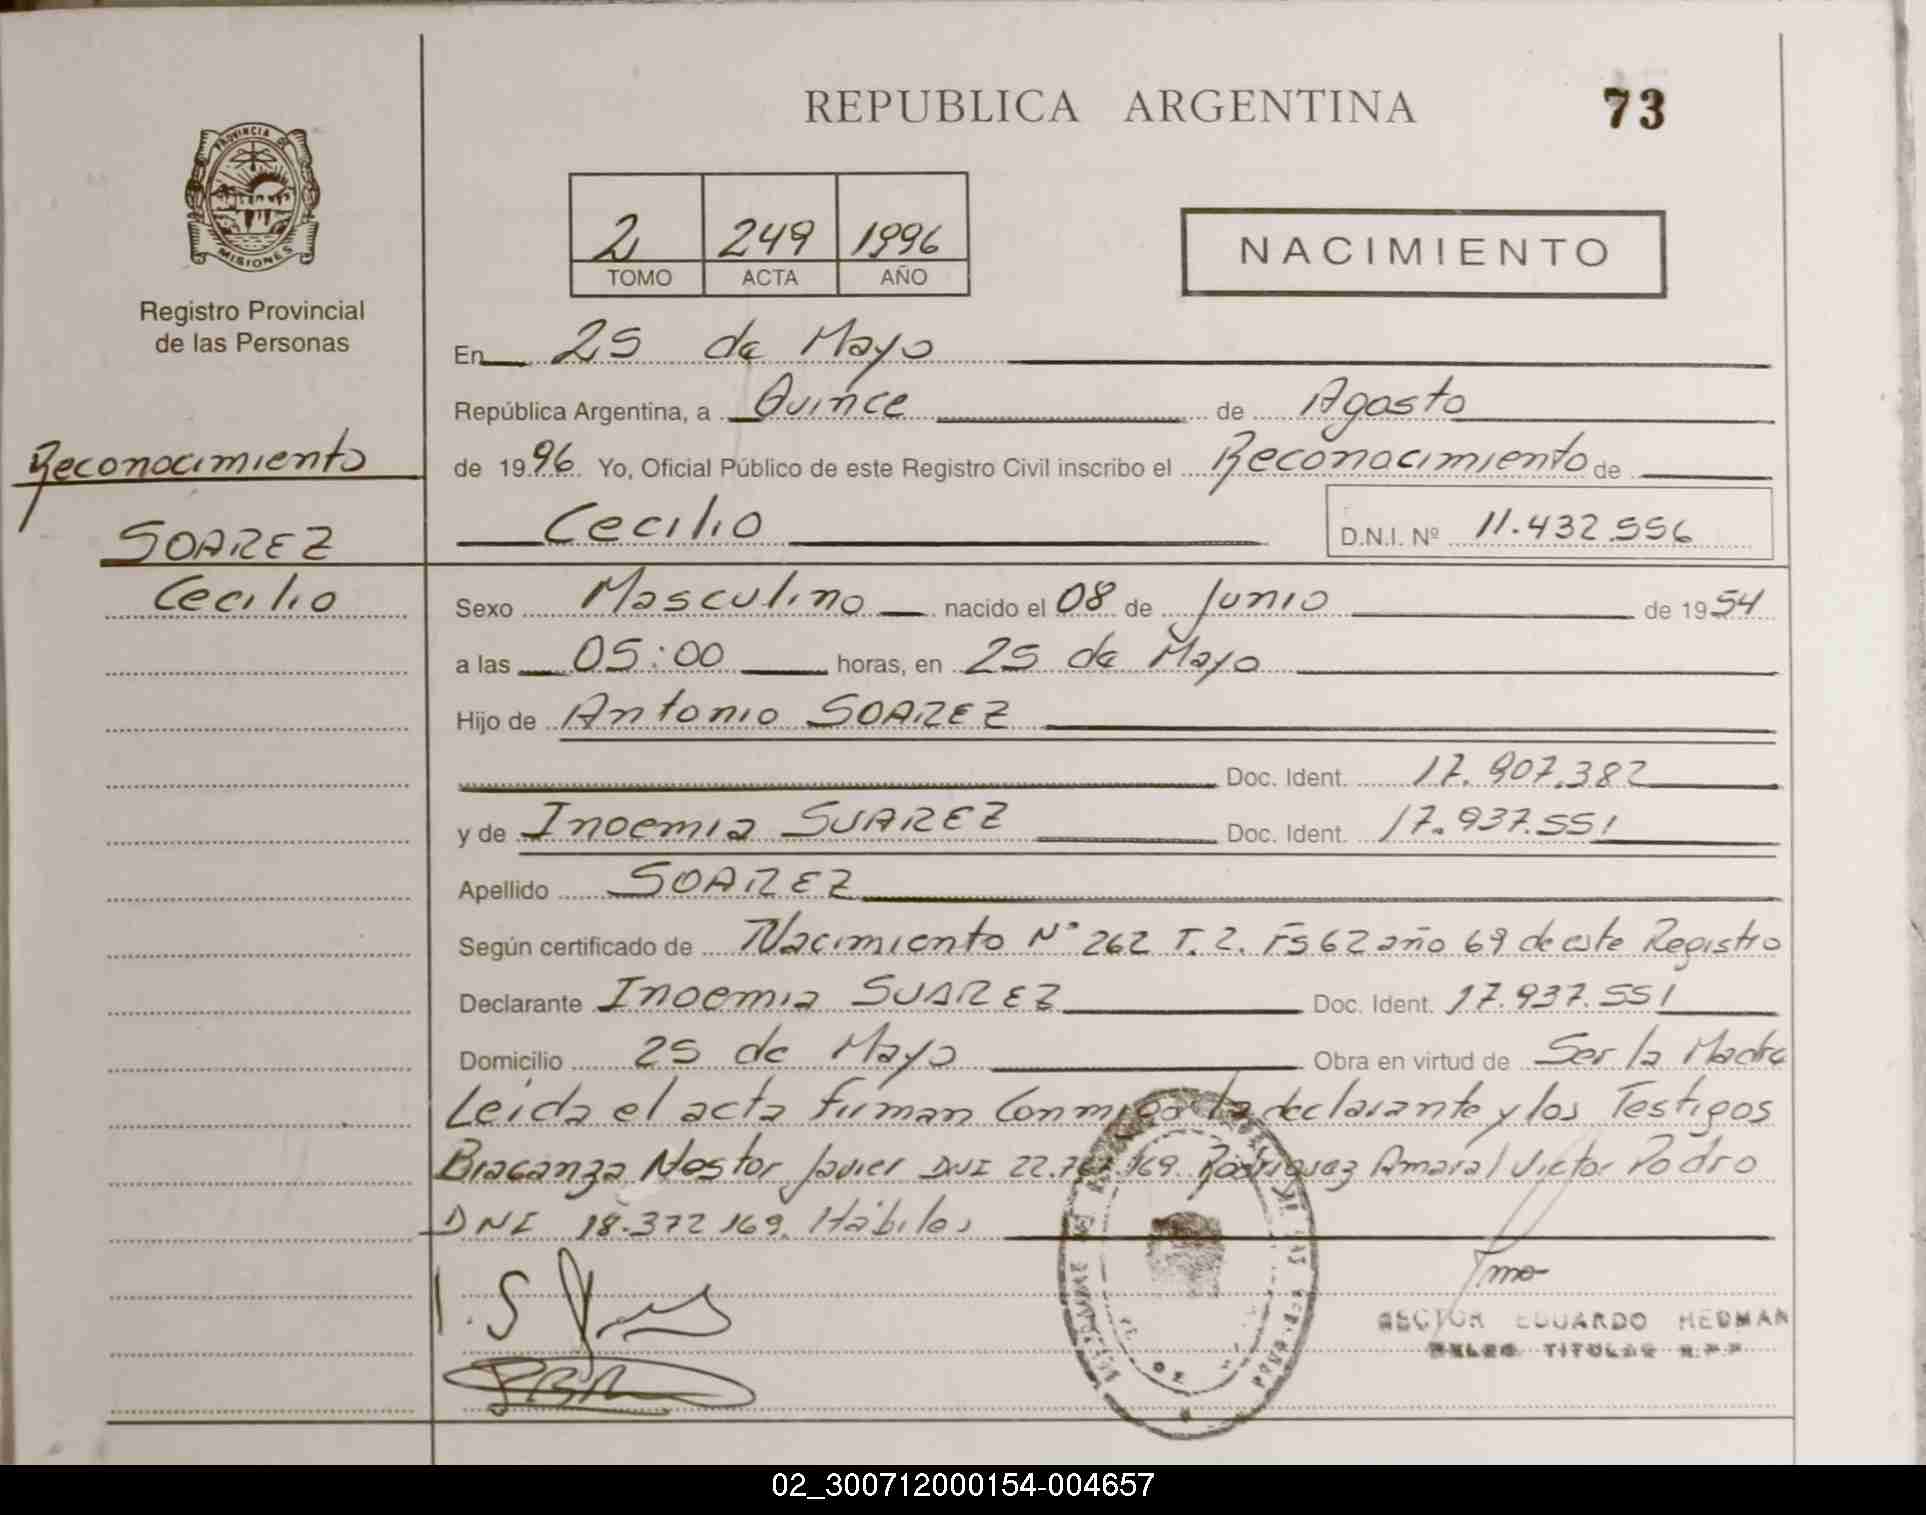 REPUBLICA ARGENTINA
73
PROVINCIA DE
MISIONES
Registro Provincial
de las Personas
2 249 1996
TOMO ACTA AÑO
NACIMIENTO
En 25 de Mayo
República Argentina, a Quince de Agosto
Reconocimiento
de 1996. Yo, Oficial Público de este Registro Civil inscribo el Reconocimiento de
SOAREZ
Cecilio D.N.I. Nº 11.432.556
Cecilio
Sexo Masculino nacido el 08 de Junio de 1954
a las 05:00 horas, en 25 de Mayo
Hijo de Antonio SOAREZ
Doc. Ident. 17.907.382
y de Inoemia SUAREZ Doc. Ident. 17.937.551
Apellido SOAREZ
Según certificado de Nacimiento N° 262 T. 2. Fs 62 año 69 de este Registro
Declarante Inoemia SUAREZ Doc. Ident. 17.937.551
Domicilio 25 de Mayo Obra en virtud de Ser la Madre
Leida el acta firman Conmigo la declarante y los Testigos
Braganza Nestor Javier DNI 22. 169. Rodriguez Amaral Victor Pedro
DNI 18.372.169. Hábiles
I. S
EDUARDO HEDMAN
TITULAR R.P.P.
02_300712000154-004657